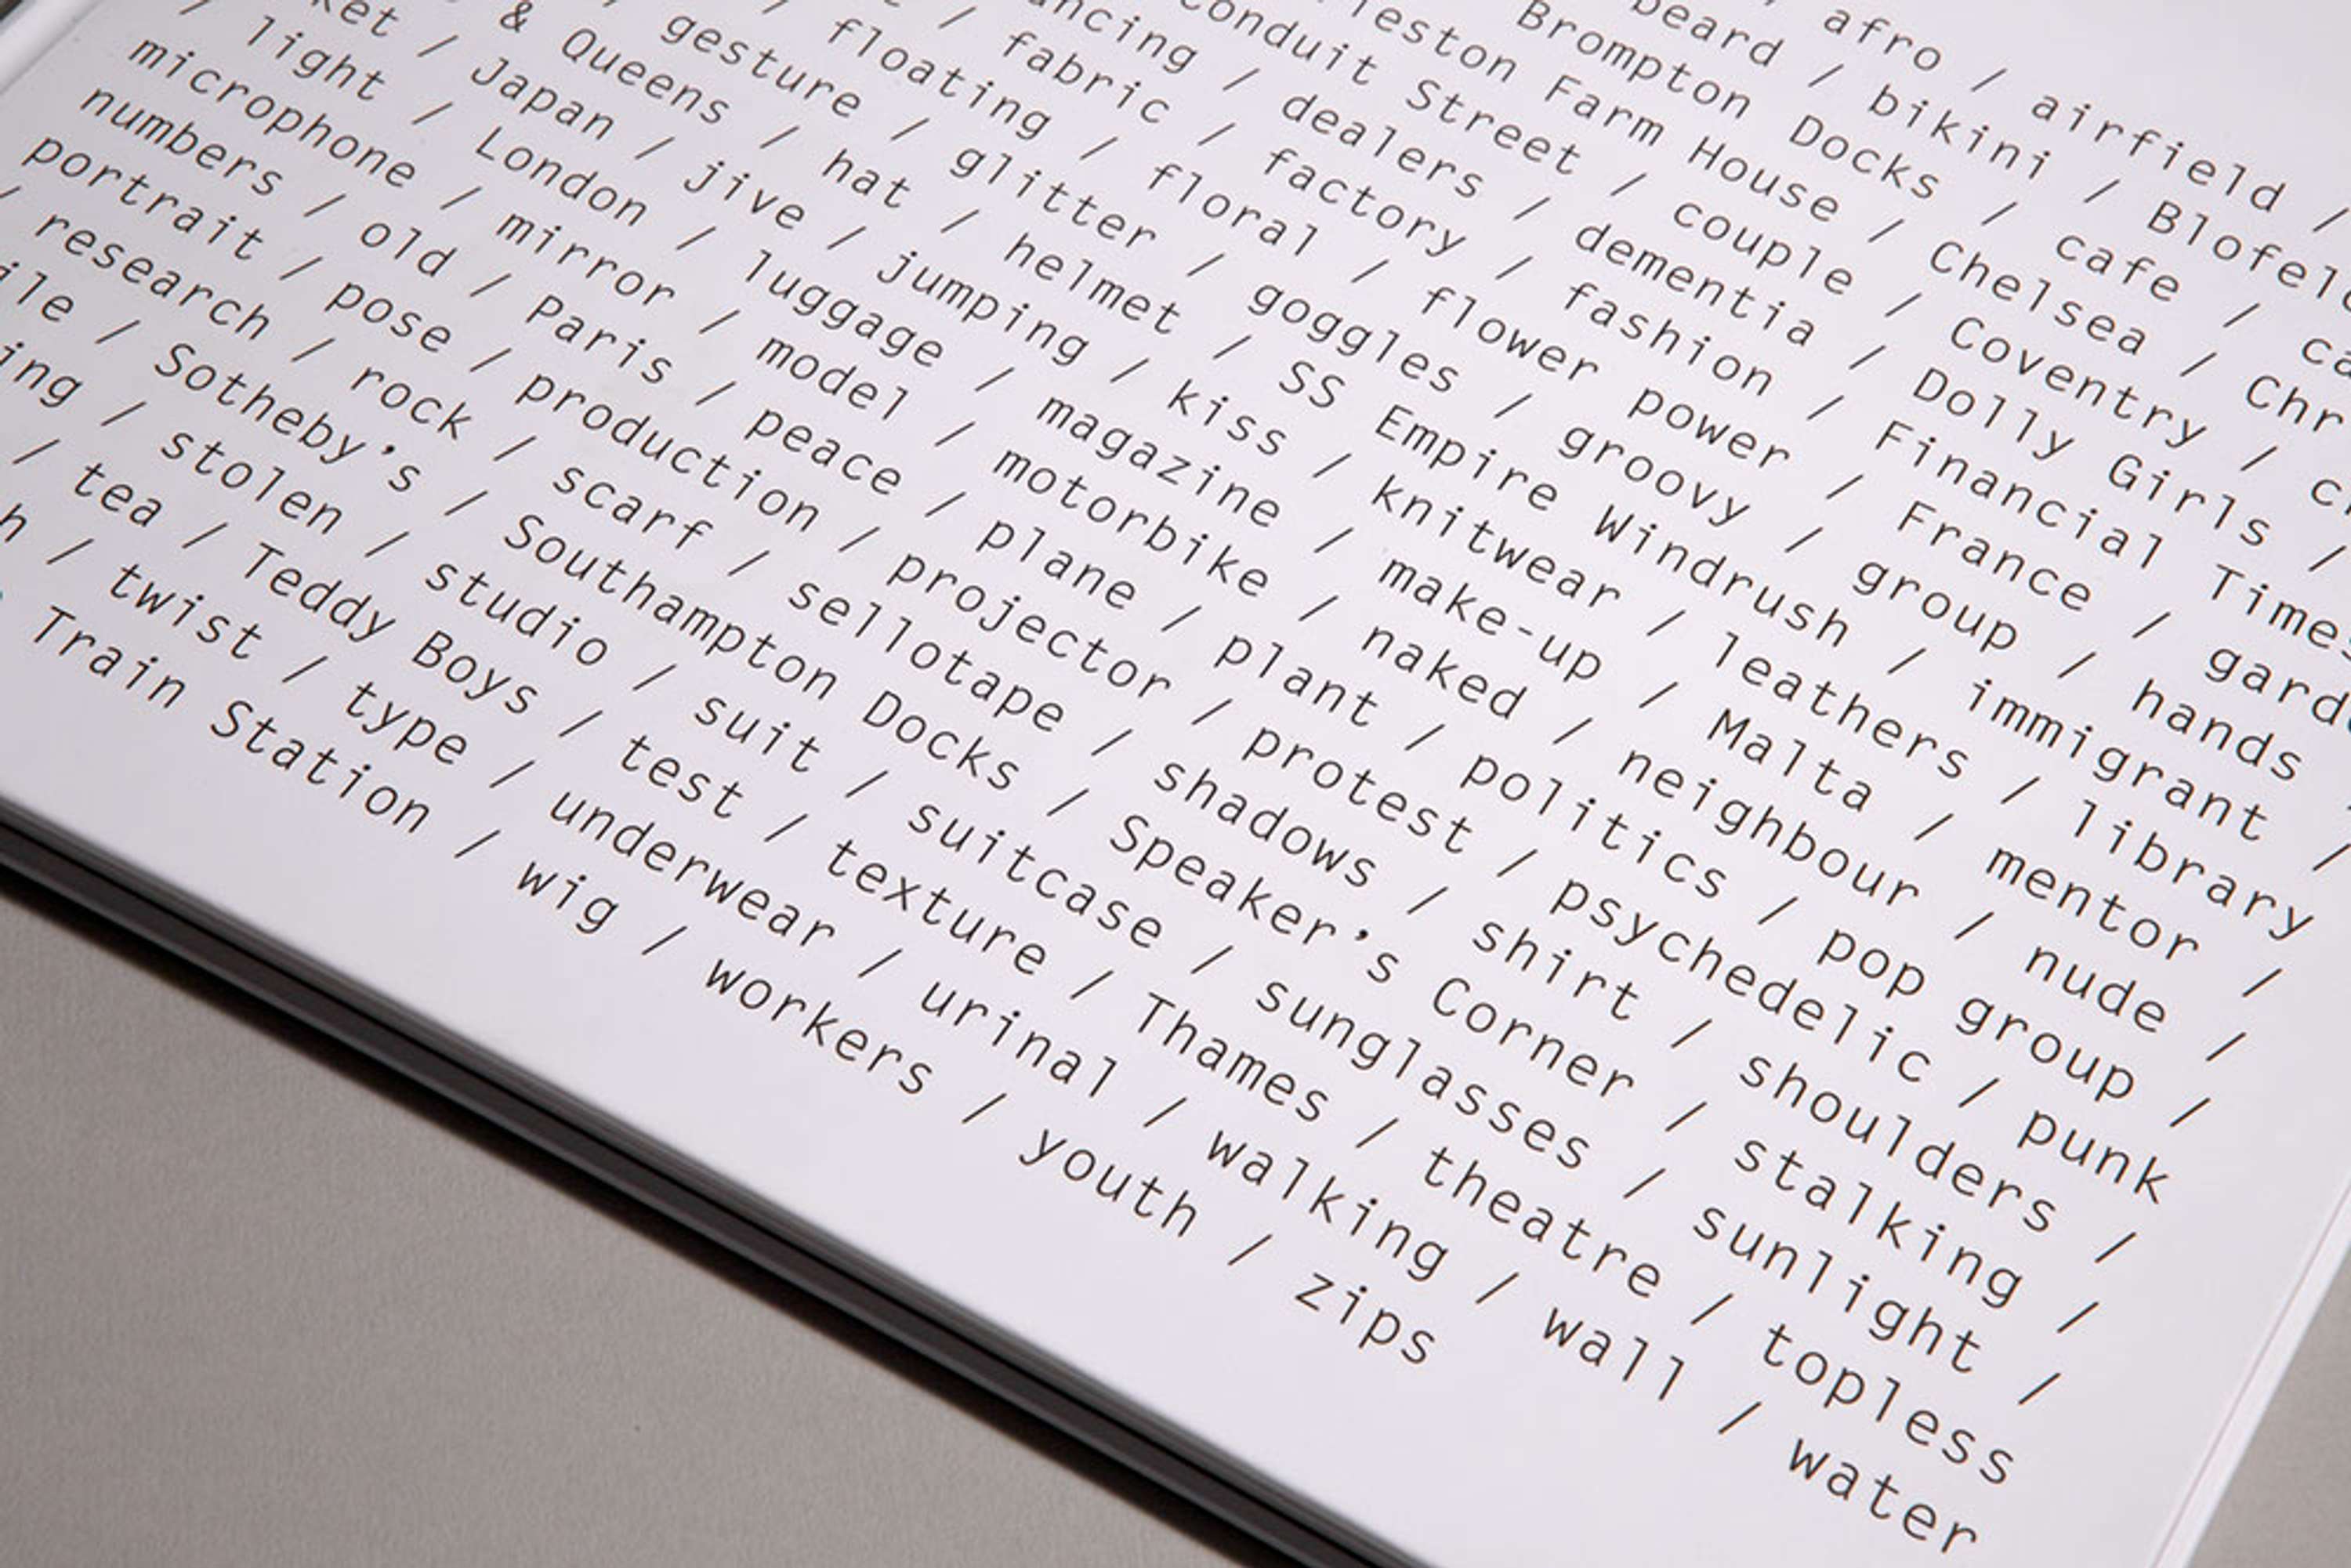 afro / airfield /
beard / bikini / Blofel
Brompton Docks / cafe / ca
leston Farm House / Chelsea / Chr
Conduit Street / couple / Coventry / c
ncing / dealers / dementia / Dolly Girls /
/ fabric / factory / fashion / Financial Times
floating / floral / flower power / France / gard
gesture / glitter / goggles / groovy / group / hands
& Queens / hat / helmet / SS Empire Windrush / immigrant /
ket / Japan / jive / jumping / kiss / knitwear / leathers / library
/ light / London / luggage / magazine / make-up / Malta / mentor /
microphone / mirror / model / motorbike / naked / neighbour / nude /
numbers / old / Paris / peace / plane / plant / politics / pop group /
portrait / pose / production / projector / protest / psychedelic / punk
/ research / rock / scarf / sellotape / shadows / shirt / shoulders /
ile / Sotheby’s / Southampton Docks / Speaker’s Corner / stalking /
ing / stolen / studio / suit / suitcase / sunglasses / sunlight /
/ tea / Teddy Boys / test / texture / Thames / theatre / topless
h / twist / type / underwear / urinal / walking / wall / water
Train Station / wig / workers / youth / zips